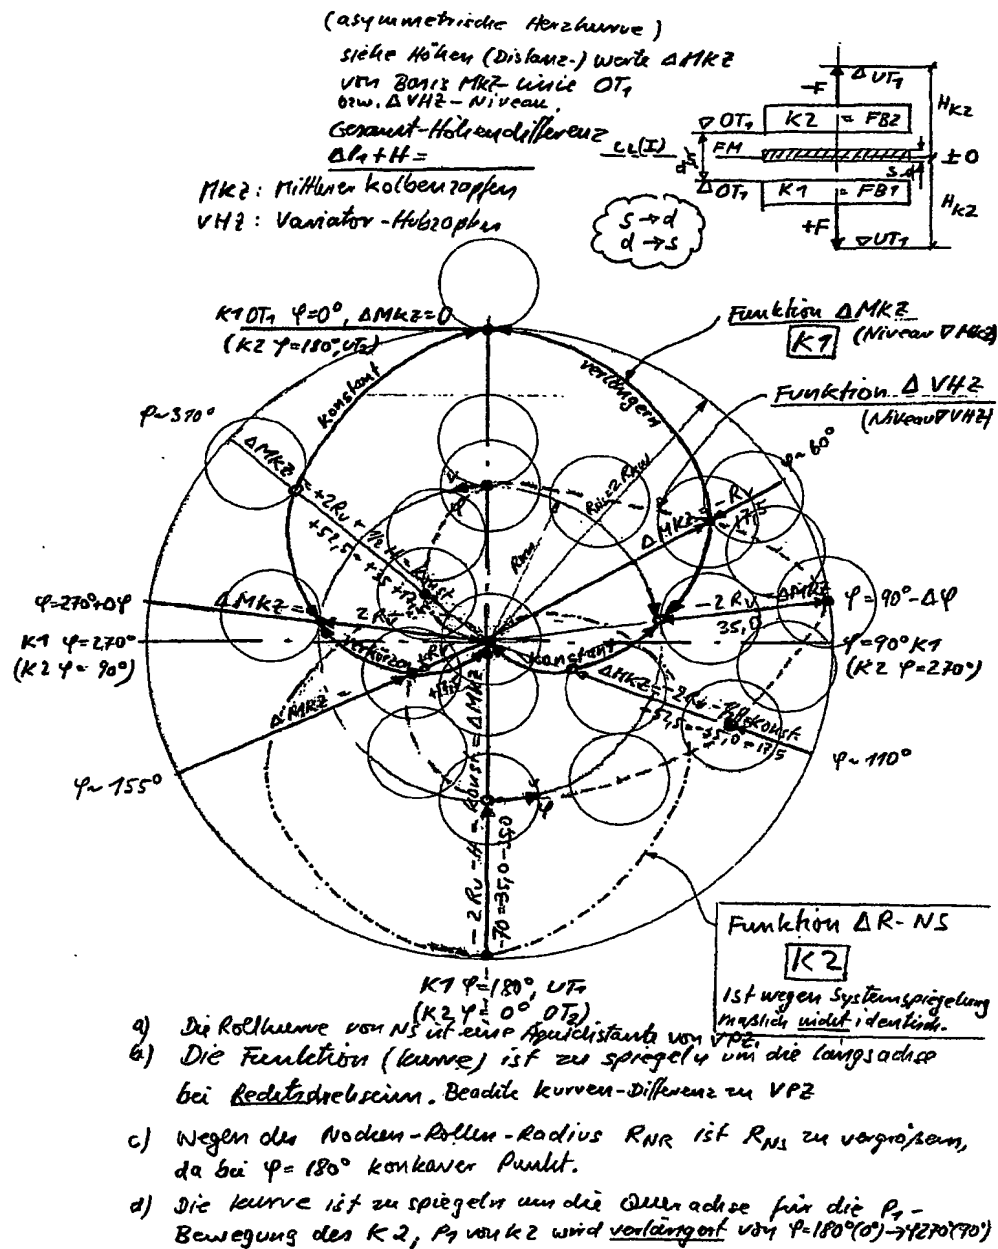 (asymmetrische Herzkurve)
siehe Höhen (Distanz-) werte ΔMKZ
von Basis MKZ-Linie OT₁
bzw. ΔVHZ-Niveau.
Gesamt-Höhendifferenz
ΔP₁+H=
MKZ: Mittlerer Kolbenzapfen
VHZ: Variator-Hubzapfen
ΔUT₁
-F
H KZ
∇OT₁
K2 = FB2
LL(I)
FM
±0
ΔOT₁
K1 = FB1
+F
H KZ
∇UT₁
s→d
d→s
K1 OT₁ φ=0°, ΔMKZ=0
(K2 φ=180°, UT₂)
Funktion ΔMKZ
K1 (Niveau∇MKZ)
Funktion Δ VHZ
(Niveau∇VHZ)
konstant
verlängern
φ~310°
ΔMKZ
φ~60°
ΔMKZ= -Rv
17,5
φ=270°+Δφ
ΔMKZ=
2 Rv
-2Rv=ΔMKZ
35,0
φ=90°-Δφ
K1 φ=270°
(K2 φ=90°)
φ=90° K1
(K2 φ=270°)
verkürzen
konstant
ΔMKZ
φ~155°
φ~110°
-2Rv-H=konst=ΔMKZ
-70=35,0-35,0
φ
Funktion ΔR-NS
K2
ist wegen Systemspiegelung
maßlich nicht identisch.
K1 φ=180°, UT₁
(K2 φ=0° OT₂)
a) Die Rollkurve von NS ist eine Äquidistante von VPZ.
b) Die Funktion (Kurve) ist zu spiegeln um die Längsachse
bei Rechtsdrehsinn. Beachte Kurven-Differenz zu VPZ
c) Wegen des Nocken-Rollen-Radius R NR ist R NS zu vergrößern,
da bei φ=180° konkaver Punkt.
d) Die Kurve ist zu spiegeln um die Querachse für die P₁-
Bewegung des K2, P₁ von K2 wird verlängert von φ=180°(0°)→φ270°(90°)